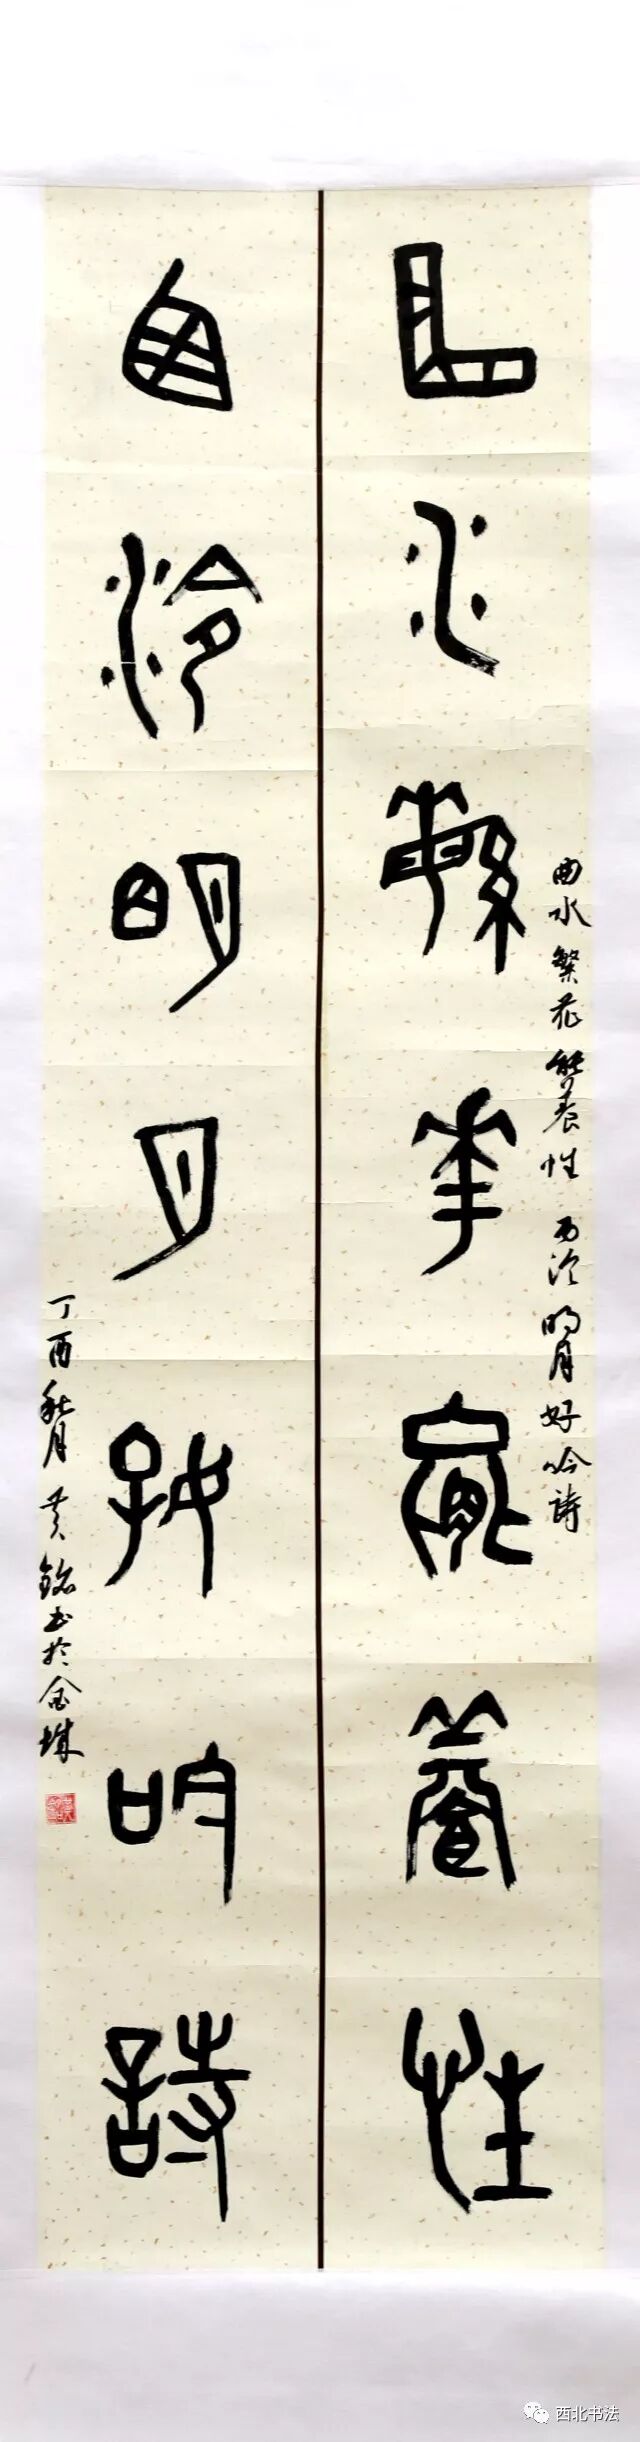 曲水緐華能養性
西泠明月好吟詩
曲水繁花能養性 西泠明月好吟詩
丁酉秋月 黄銘书於金城
西北书法